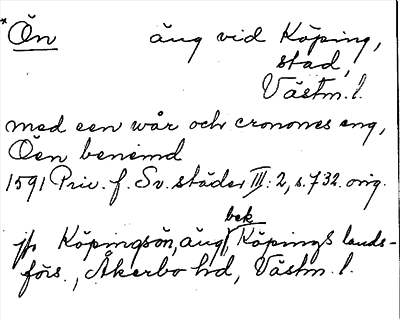 *Ön äng vid Köping,
stad,
Västm. l.
med een wår och cronones eng,
Öen benemd
1591 Priv. f. Sv. städer III: 2, s. 732. orig.
bek
jfr Köpingsön, äng, Köpings lands-
förs., Åkerbo hd, Västm. l.